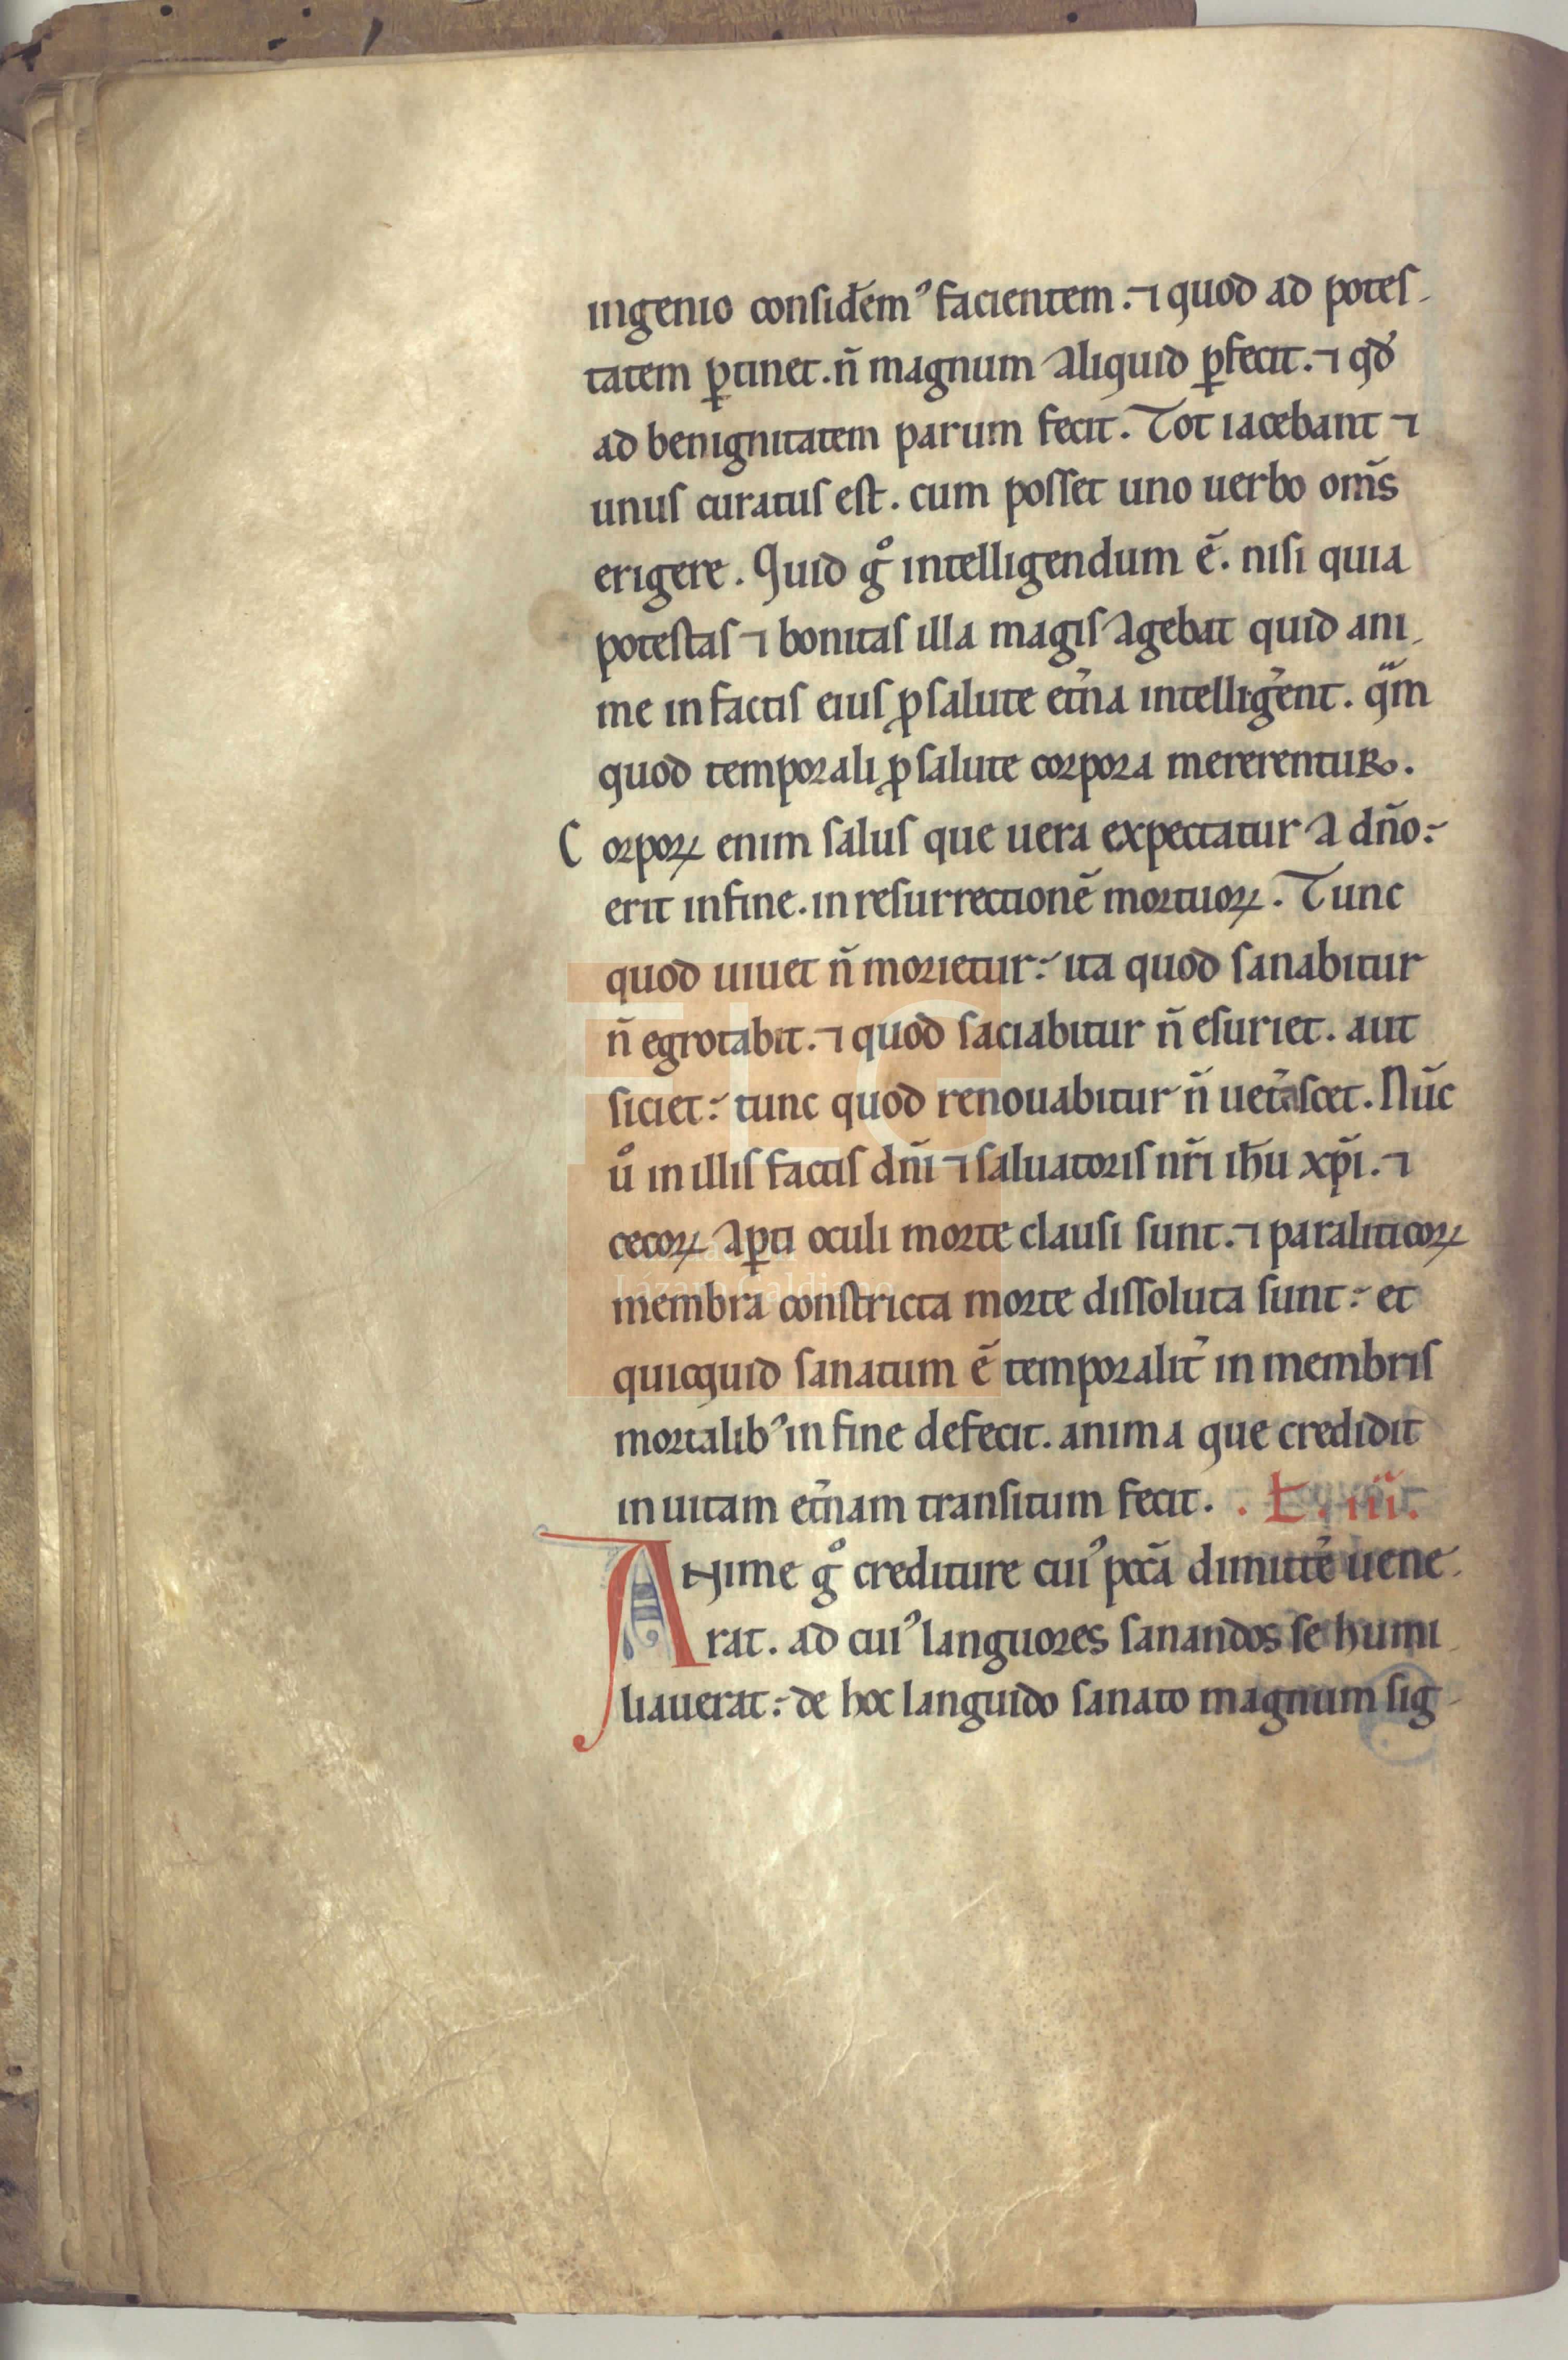 ingenio consid̄em᾽ facientem. ⁊ quod ad potes-
tatem ꝑtinet. n̄ magnum aliquid ꝑfecit. ⁊ qd̾
ad benignitatem parum fecit. Tot iacebant ⁊
unuſ curatuſ eſt. cum poſſet uno uerbo om̄s
erigere. Quid gͦ intelligendum ē. niſi quia
poteſtaſ ⁊ bonitaſ illa magiſ agebat quid ani-
me in factiſ eiuſ ꝓ ſalute et̾na intellig̾ent. qᷓm
quod temporali ꝓ ſalute corpora mererentur.
Corpoꝝ enim ſaluſ que uera expectatur a dn̄o:-
erit in fine. in reſurrectionē mortuoꝝ. Tunc
quod uiuet n̄ morietur:- ita quod ſanabitur
n̄ egrotabit. ⁊ quod ſaciabitur n̄ eſuriet. aut
ſiciet:- tunc quod renouabitur n̄ uet̾aſcet. Nūc
uͦ in illiſ factiſ dn̄i ⁊ ſaluatoriſ nr̄i ih̄u xp̄i. ⁊
cecoꝝ aꝑti oculi morte clauſi ſunt. ⁊ paraliticoꝝ
membra conſtricta morte diſſoluta ſunt:- et
quicquid ſanatum ē temporalit̾ in membriſ
mortalib᾽ in fine defecit. anima que credidit
in uitam et̾nam tranſitum fecit. . L. iii.
Anime gͦ crediture cui᾽ pccā dimitte̾ uene-
rat. ad cui᾽ languores ſanandos ſe humi-
liauerat:- de hoc languido ſanato magnum ſig-
FLG
Lázaro Galdiano